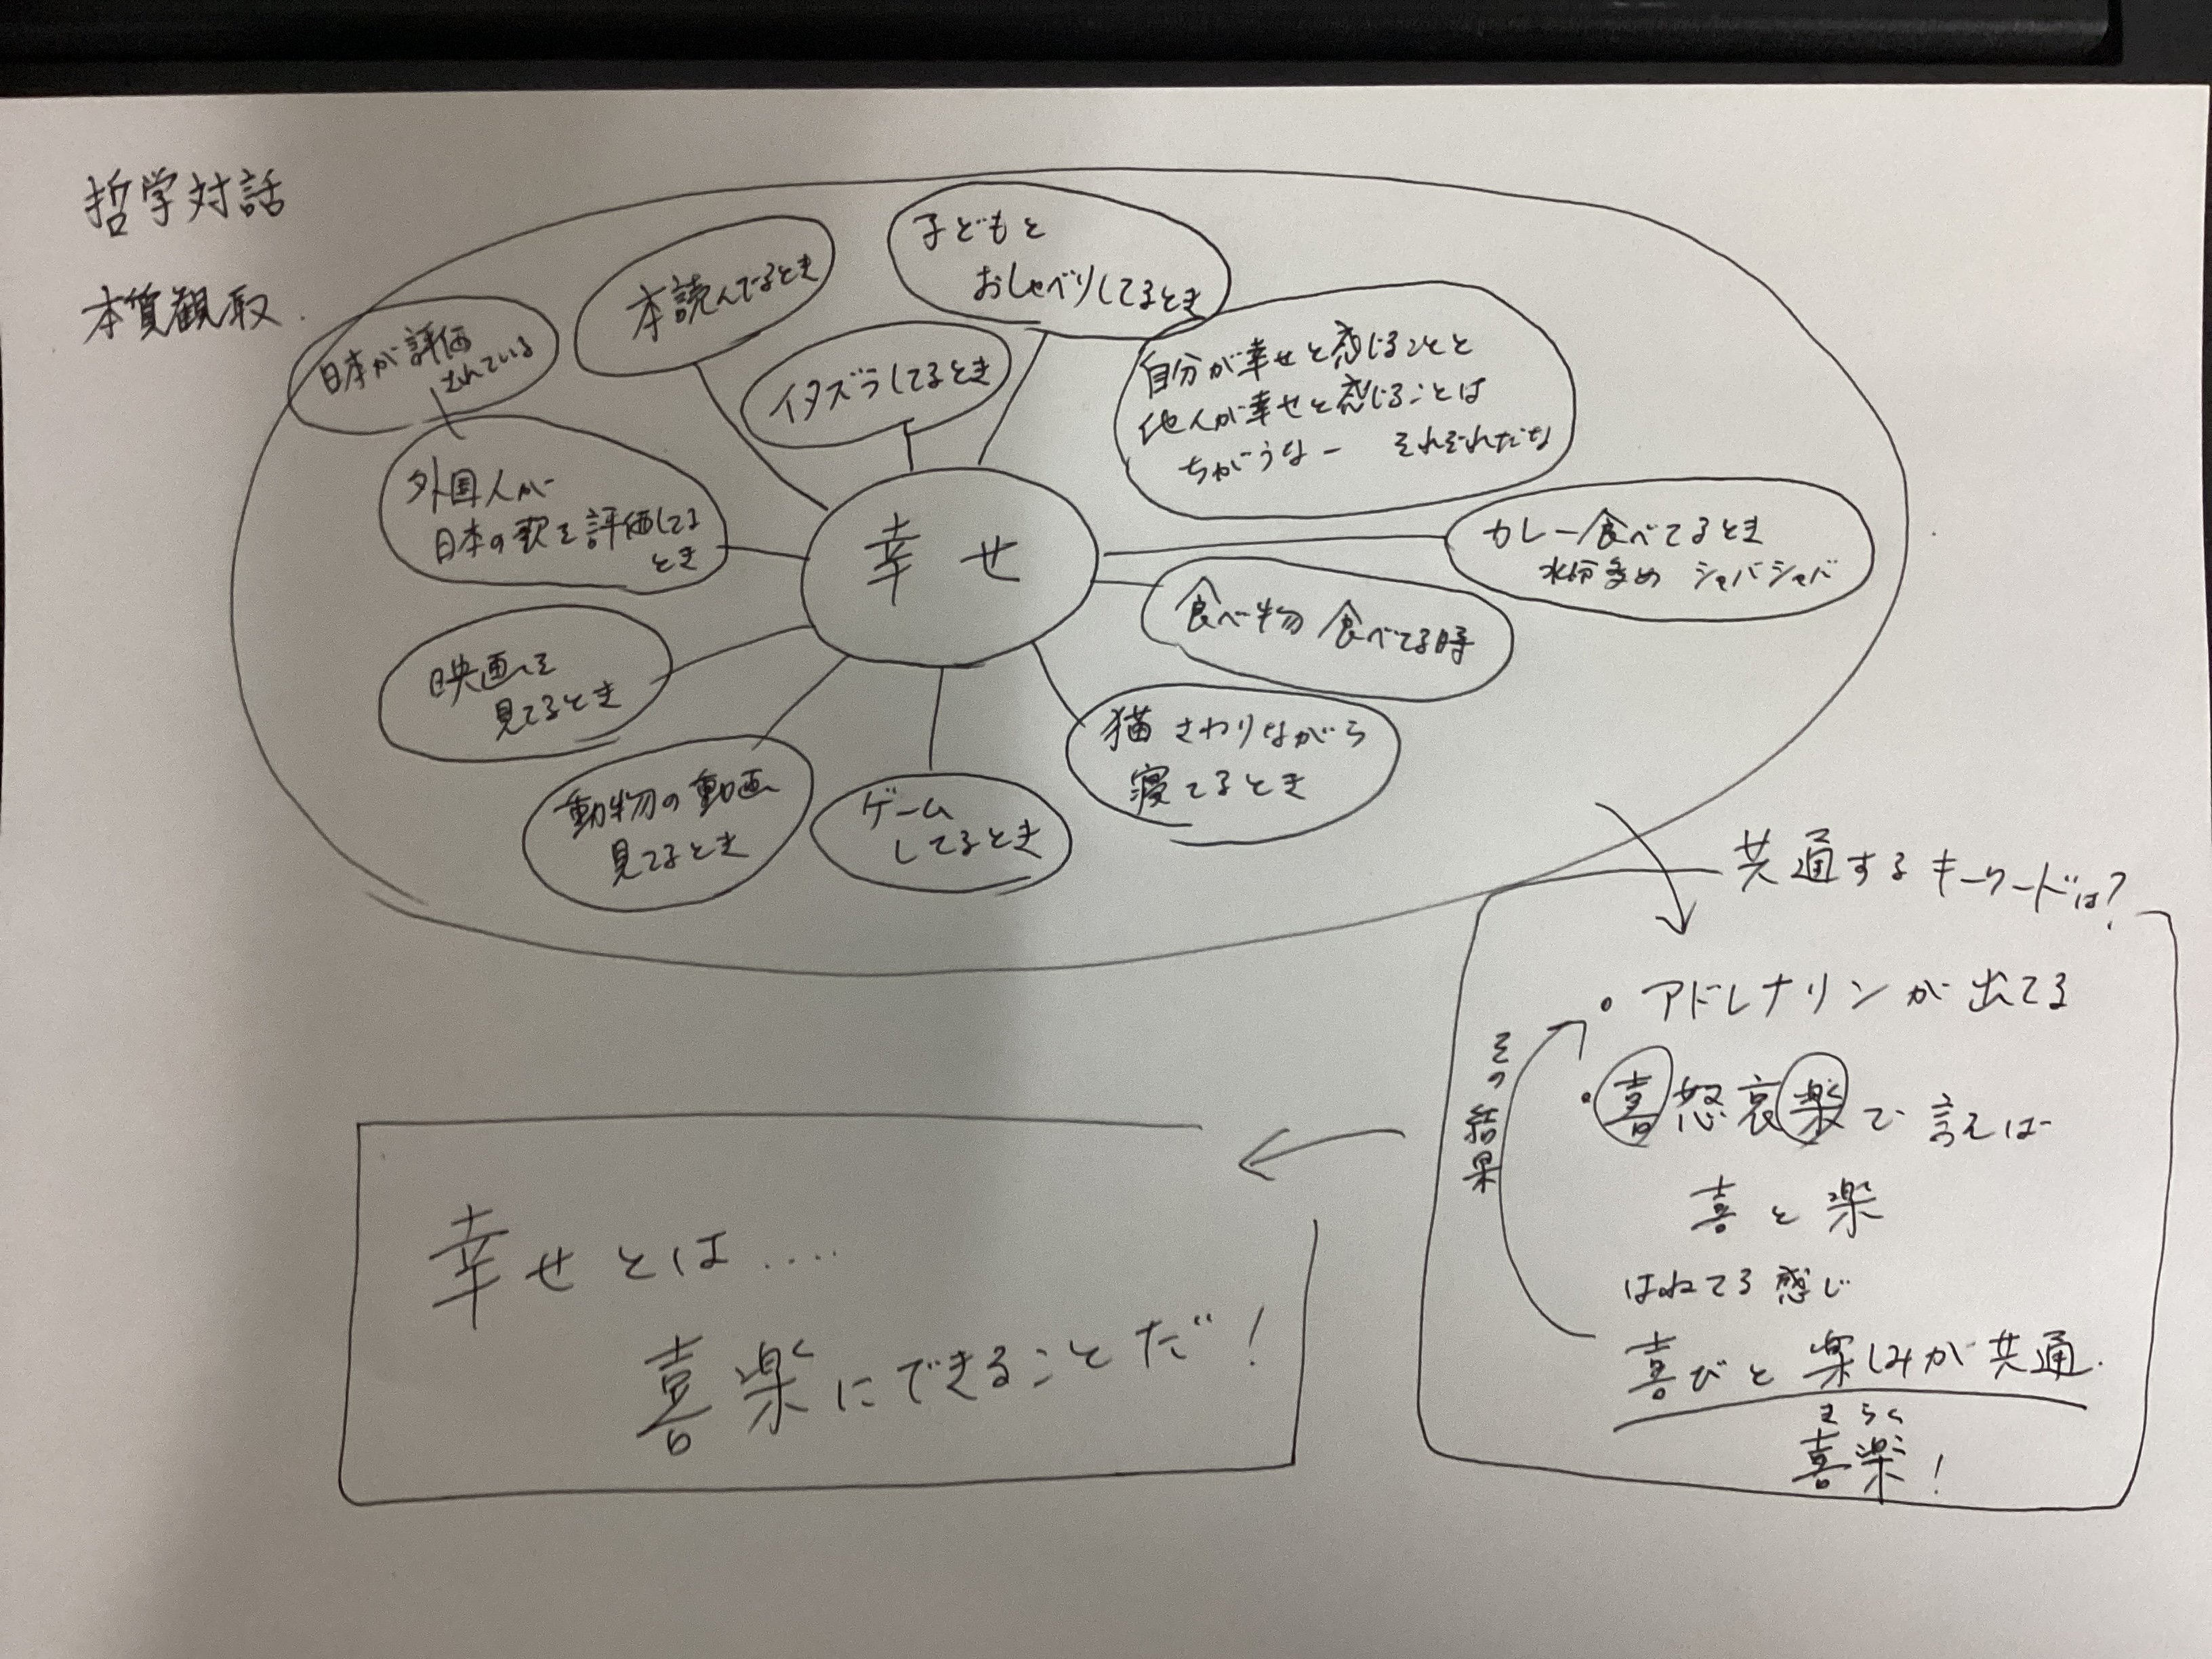 哲学対話
本質観取.
日本が評価
されている
本読んでるとき
子どもと
おしゃべりしてるとき
イタズラしてるとき
自分が幸せと感じることと
他人が幸せと感じることは
ちがうなー それぞれだな
外国人が
日本の歌を評価してる
とき
幸せ
カレー食べてるとき
水分多め シャバシャバ
食べ物 食べてる時
映画を
見てるとき
猫 さわりながら
寝てるとき
動物の動画
見てるとき
ゲーム
してるとき
共通するキーワードは?
・アドレナリンが出てる
・喜怒哀楽で言えば
喜と楽
はねてる感じ
喜びと楽しみが共通.
きらく
喜楽!
その結果
幸せとは....
喜楽にできることだ!